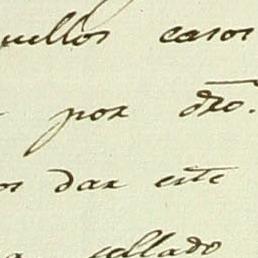 uellos casos
por dro.
os dar este
sellado